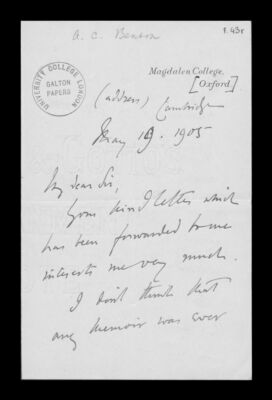 A. C. Benson
f. 43r
UNIVERSITY COLLEGE LONDON
GALTON PAPERS
Magdalen College,
[Oxford.]
(address) Cambridge
May 19. 1905
My dear Sir,
Your kind letter which
has been forwarded to me
interests me very much.
I don't think that
any memoir was ever